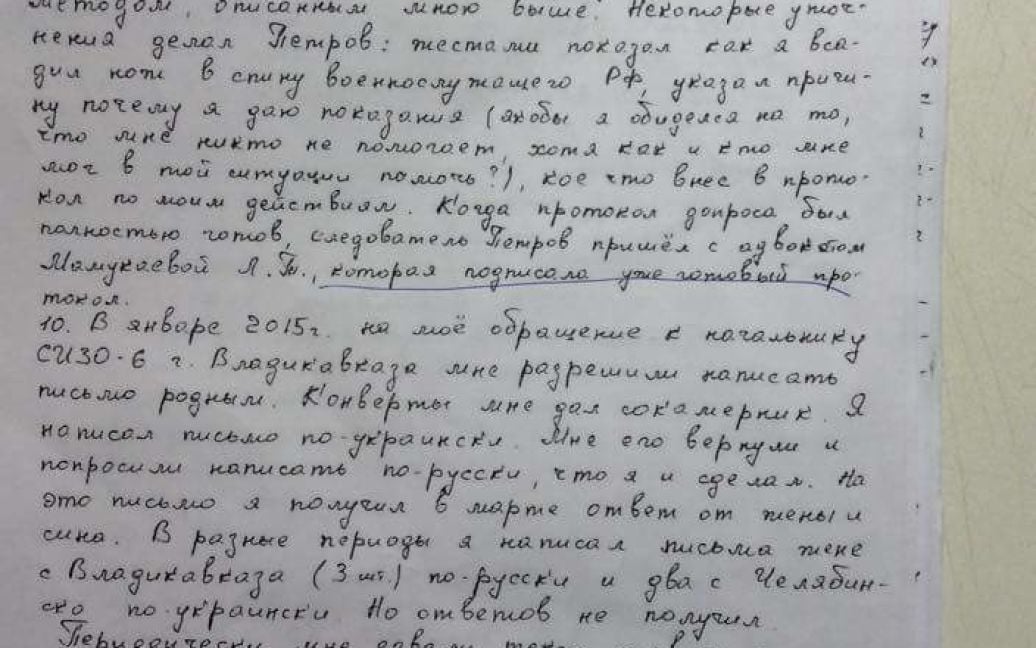 методом, описанным мною выше. Некоторые уточ-
нения делал Петров: жестами показал как я вса-
дил нож в спину военнослужащего РФ, указал причи-
ну почему я даю показания (якобы я обиделся на то,
что мне никто не помогает, хотя как и кто мне
мог в той ситуации помочь?), кое что внес в прото-
кол по моим действиям. Когда протокол допроса был
полностью готов, следователь Петров пришёл с адвокатом
Мамукаевой Л.Т., которая подписала уже готовый про-
токол.
10. В январе 2015г. на моё обращение к начальнику
СИЗО-6 г. Владикавказа мне разрешили написать
письмо родным. Конверты мне дал сокамерник. Я
написал письмо по-украински. Мне его вернули и
попросили написать по-русски, что я и сделал. На
это письмо я получил в марте ответ от жены и
сына. В разные периоды я написал письма жене
с Владикавказа (3 шт.) по-русски и два с Челябин-
ска по-украински Но ответов не получил.
Периодически мне давали